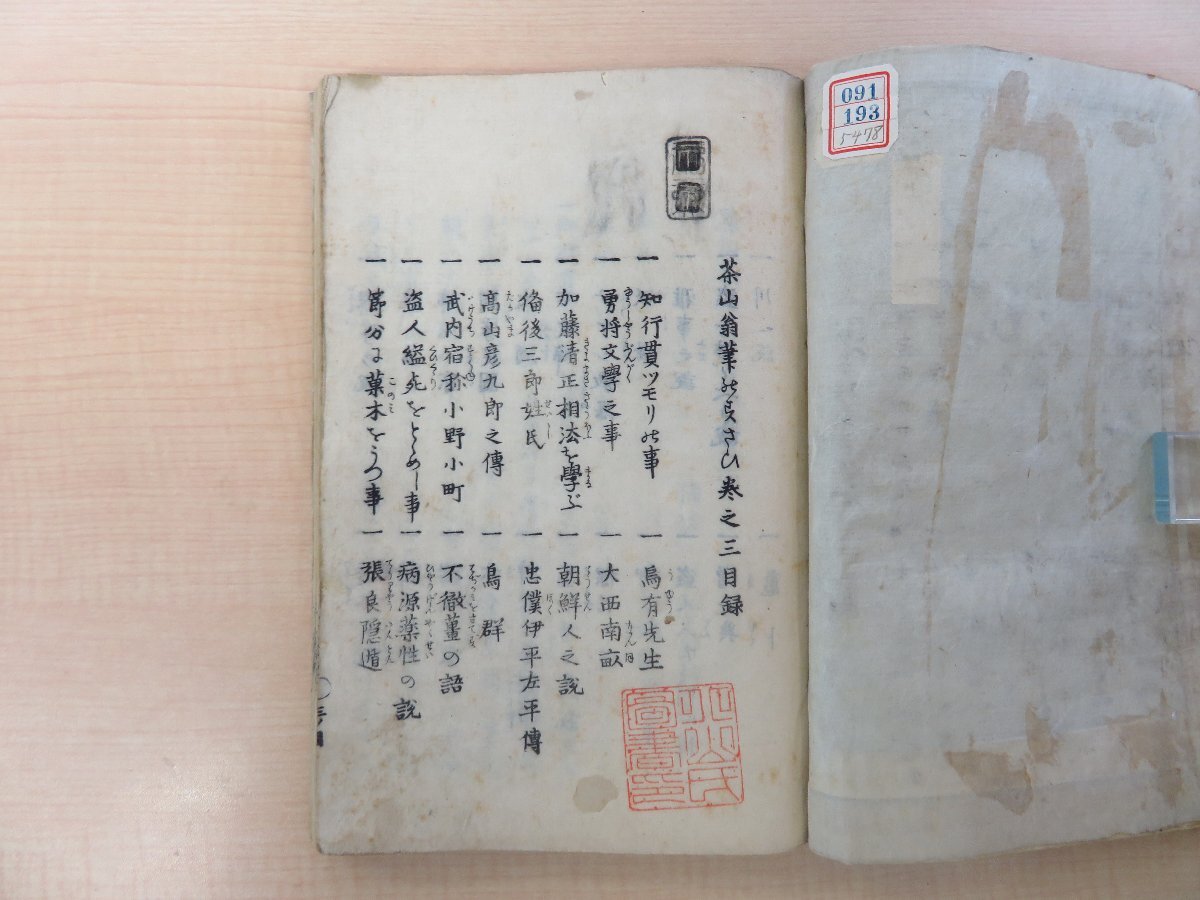 091
193
5478
茶山翁筆のすさひ巻之三目録
一 知行貫ツモリの事 一 烏有先生
一 勇将文學之事 一 大西南畝
一 加藤清正相法を學ぶ 一 朝鮮人之説
一 俻後三郎姓氏 一 忠僕伊平左平傳
一 髙山彦九郎之傳 一 鳥群
一 武内宿祢小野小町 一 不徹薑の語
一 盗人縊死をとめし事 一 病源薬性の説
一 莭分に菓木をうつ事 一 張良隠遁